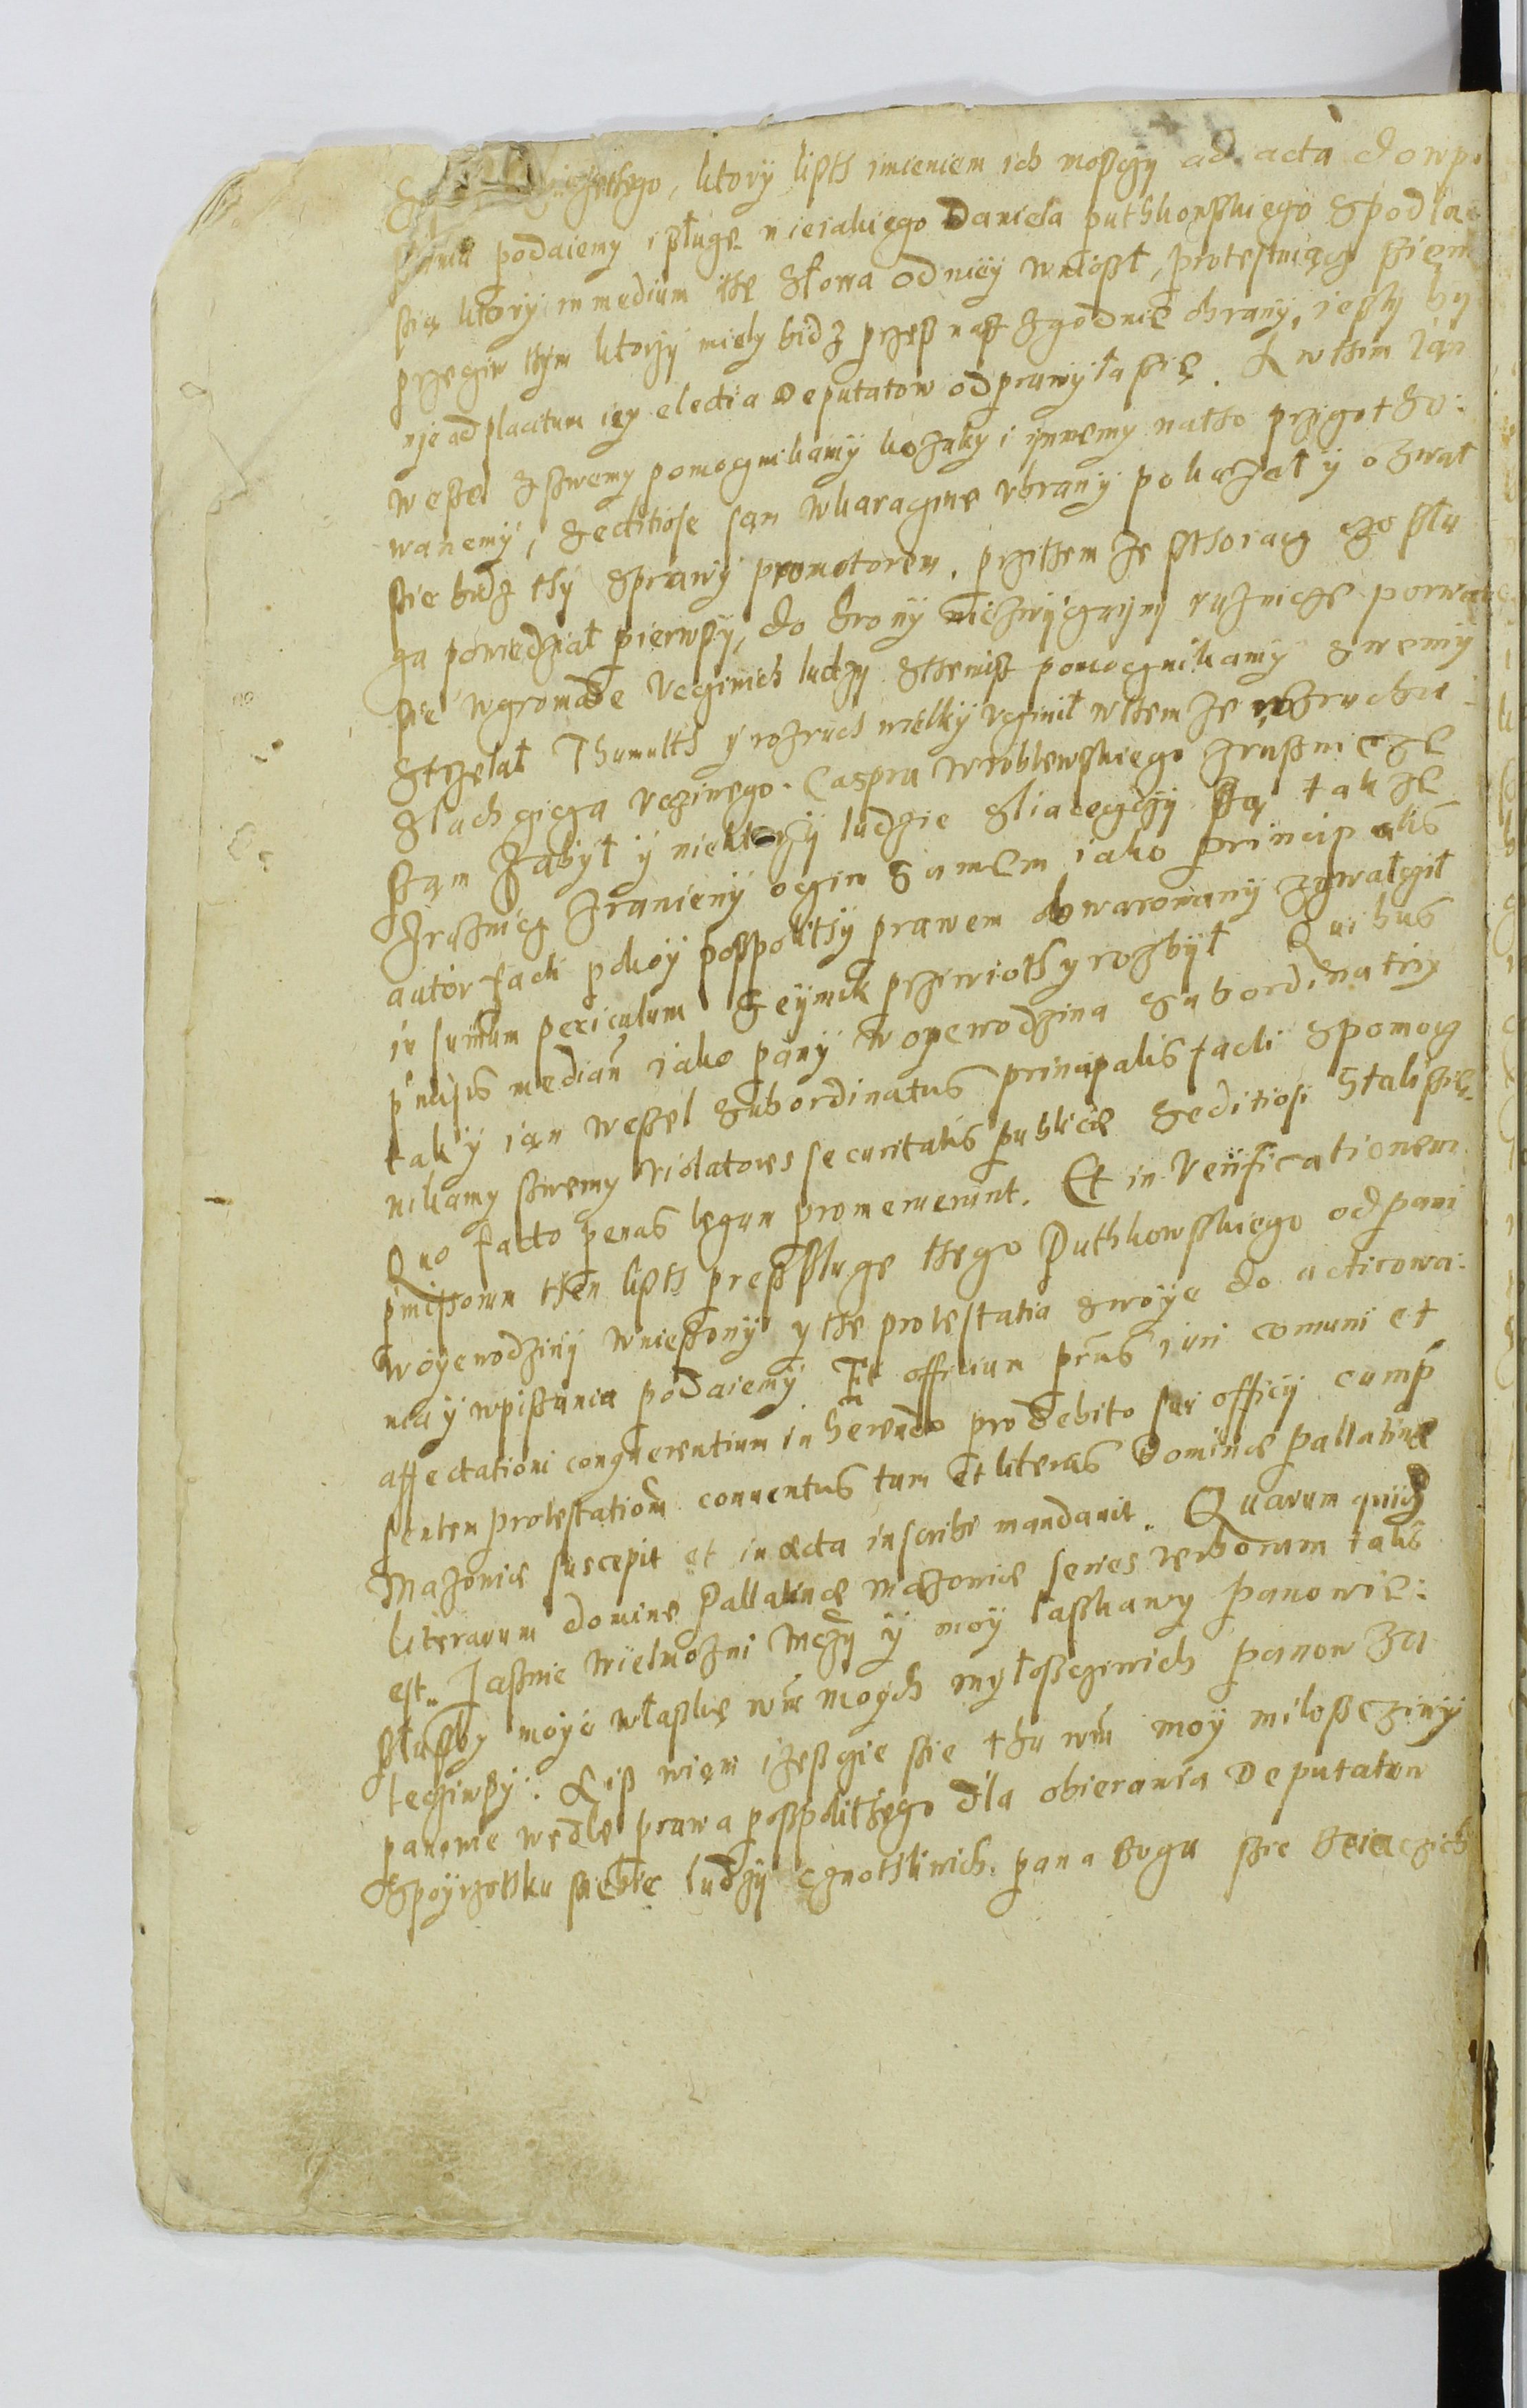 ktory listh imieniem ich mosczy ad acta do wpi
podaiemy i sługe nieiakiego Daniela puthkowskiego spodla
sia ktory in medium the słowa od niey wniosł, protestuiącz siem
przeciw thym ktorzy miely bidz przes nas zgodnie obrany, iesly by
nie ad placitum iey electia Deputatow odprawyła sie. A wthem ian
wessel sswemy pomocznikamy kozaky i ynnemy natho przigotho:
wanemy, seditiose sam wkaraczine vbrany pokazał y ozwał
sie bidz thy sprawy promotorem. przithem ze sthoiacz czo słu
ga powiedział pierwszy, do brony niezwyczainy rusznicze porwawszy
sie wgromade vczciwich ludzy sthemisz pomocznikamy swemy
strzelał Thumulth y rozruch wielky vczinił wthemze rozruchu
slachcicza vcziwego. Caspra wroblewskiego zrusznicze
sam zabył y niektorzy ludzie sliacheczczy są takze
zrusznicz zranieny oczim samem iako principalis
autor facti pokoy pospolithy prawem obwarowany zgwałcził
in summum periculum seymik przewiothł y rozbył Quibus
pmissis mediantibus iako pany woyewodzina subordinatrix
tak y ian wessel subordinatus principalis facti spomocz
nikamy swemy violatores securitatis publicæ seditiosi stalissie.
Quo facto penas legum promeruerunt. Et in verificationem
pmissorum then listh pres sługe thego Puthkowskiego od pani
woyewodziny wniesiony y the protestatia swoye do acticowa:
nia y wpisania podaiemy. Et officium pñs iuri comuni et
affectationi conquerentium in herendo pro debito sui officy cump
sentem protestationem conuentus tum et literas Dominæ pallatinæ
Mazoniæ suscepit et in acta inscribi mandauit. Quarum quidem
literarum domine Pallatinæ mazoniæ series verborum talis
est. Jasnie wielmozni Mczy y moy łaskawy panowie:
słuszby moye właskę wm moych myłosczwich panow za
lecziwszy. Asz wiem izescie sie thu wm moy miłosciwy
panowie wedle prawa pospolithego dla obierania Deputatow
spoyrzothku siebie ludzy cznothliwich. pana Boga sie boiaczich